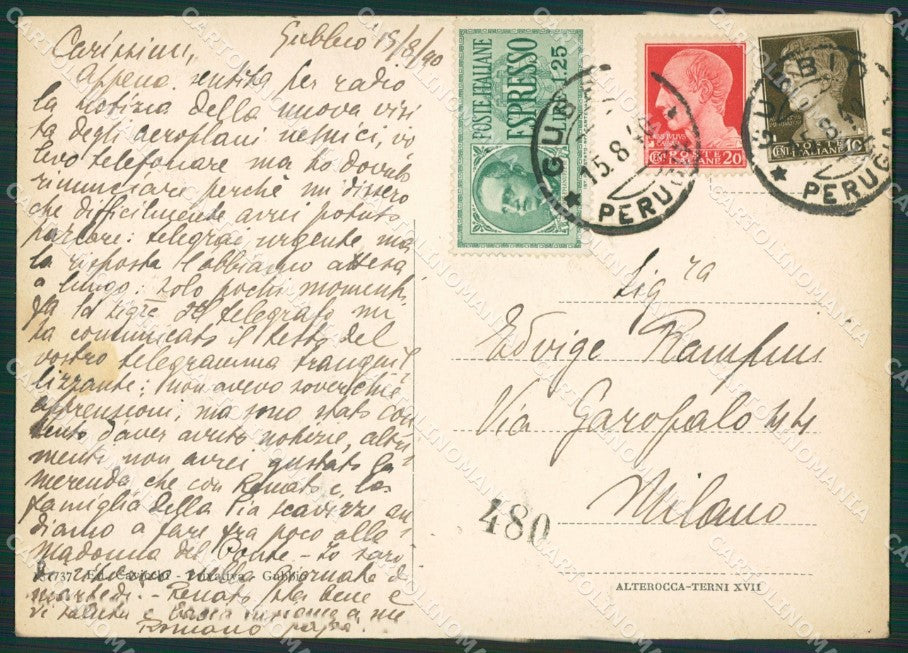 Gubbio 15/8/40
Carissimi,
Appena sentita per radio
la notizia della nuova visi
ta degli aeroplani nemici, vo
levo telefonare ma ho dovuto
rinunciare perchè mi dissero
che difficilmente avrei potuto
parlare: telegrafai urgente, ma
la risposta l'abbiamo attesa
a lungo: solo pochi momenti
fa la del telegrafo mi
ha comunicato il testo del
vostro telegramma tranquil
lizzante: non avevo soverchie
apprensioni, ma sono stato con
tento d'aver avuto notizie, altri
menti non avrei gustato la
merenda che con Renato e la
famiglia della Pia an
diamo a fare fra poco alla
Madonna del Ponte - Io sarò
di nella giornata di
martedì - Renato sta bene e
vi saluta e bacia insieme a me
Romano papà.
737 - Ed. - Gubbio
POSTE ITALIANE
ESPRESSO
LIRE 1.25
CENT. 20
POSTE ITALIANE
CENT. 10
POSTE ITALIANE
GUBBIO
15.8.40
PERUGIA
GUBBIO
PERUGIA
Sig.ra
Edvige Rampini
Via Garofalo 44
Milano
480
ALTEROCCA-TERNI XVII
CARTOLINOMANIA